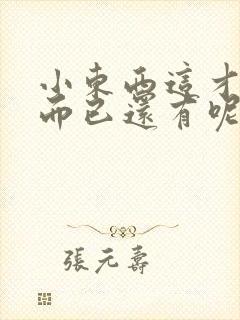 小東西這才
而已還有呢
張元壽